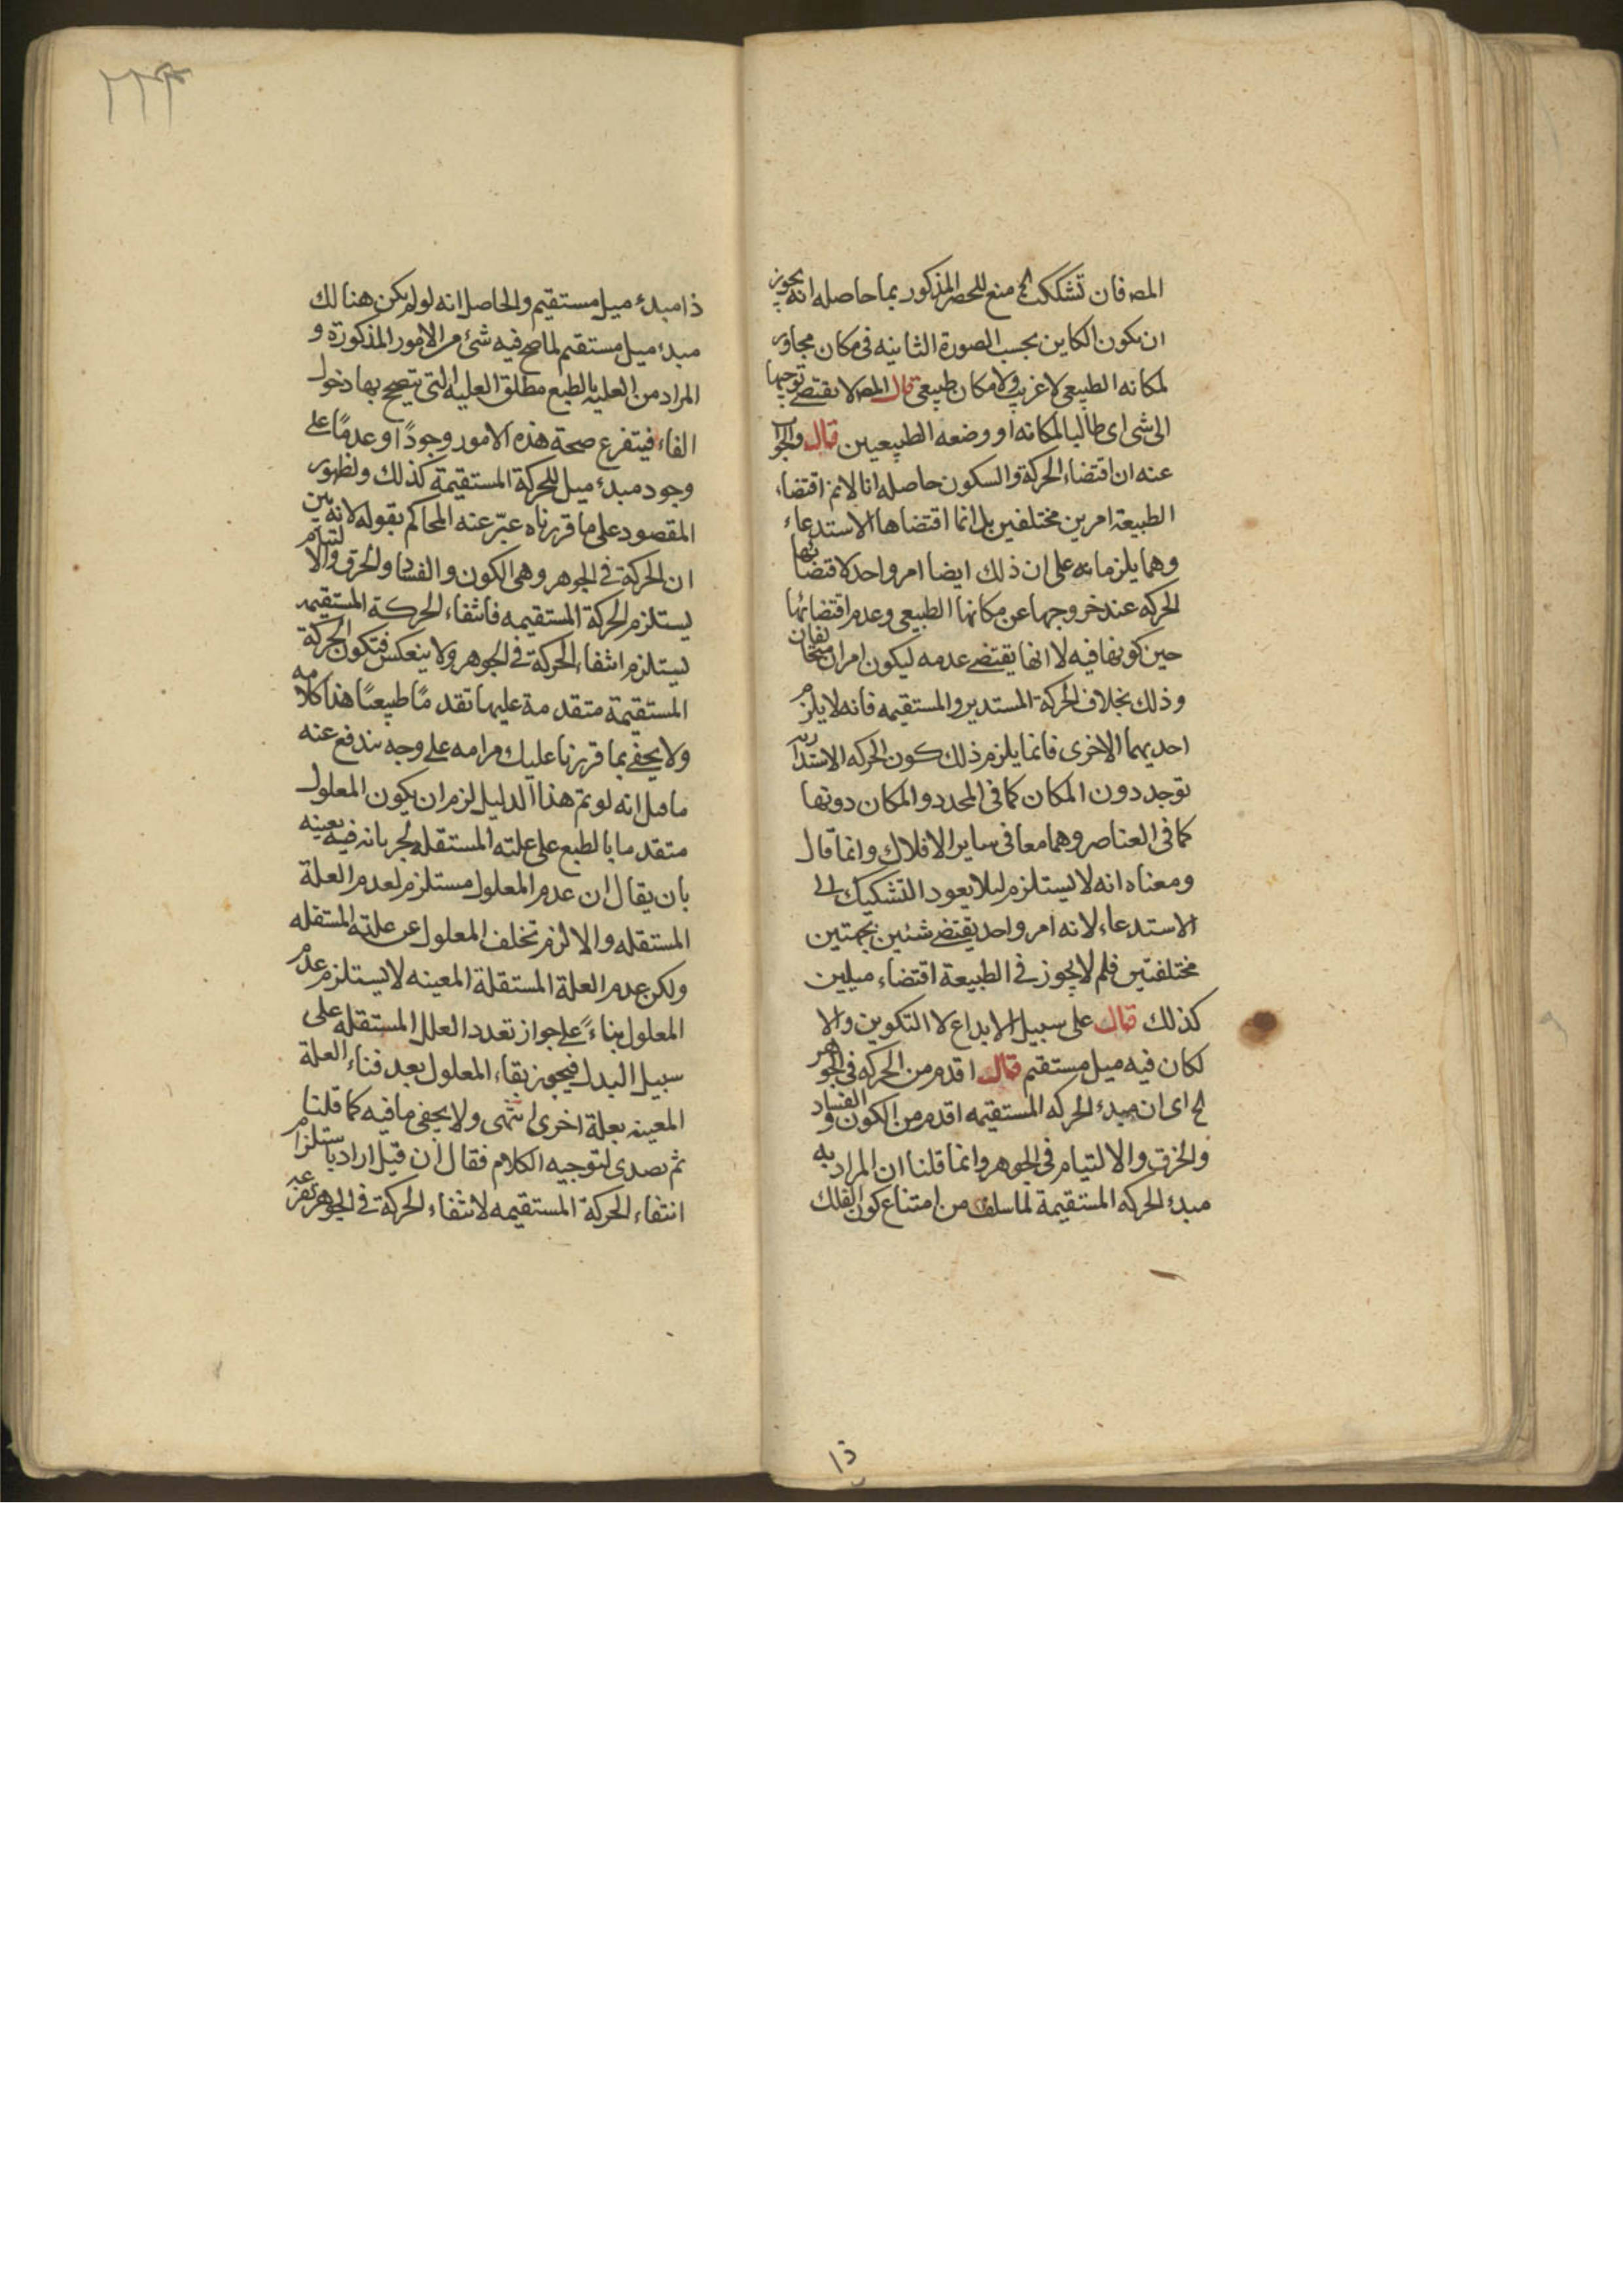 المص فان تشككت الخ منع للحصر المذكور بما حاصله انه يجوز
ان يكون الكاين بحسب الصورة الثانيه فى مكان مجاور
لمكانه الطبيعى لا غريب ولا مكان طبيعى قال المص لا يقتضى توجها
الى شى اى طالبا لمكانه او وضعه الطبيعيين قال والجواب
عنه ان اقتضاء الحركة والسكون حاصله انا لا نم اقتضاء
الطبيعة امرين مختلفين بل انما اقتضاها الاستدعاء
وهما يلزمانه على ان ذلك ايضا امر واحد لاقتضائها
الحركه عند خروجها عن مكانها الطبيعى وعدم اقتضائها
حين كونها فيه لا انها يقتضى عدمه ليكون امران متخالفان
وذلك بخلاف الحركة المستدير والمستقيمه فانه لا يلزم
احديهما الاخرى فانما يلزم ذلك كون الحركه الاستداريه
توجد دون المكان كما فى المحدد والمكان دونها
كما فى العناصر وهما معا فى ساير الافلاك وانما قال
ومعناه انه لا يستلزم ليلا يعود التشكيك الى
الاستدعاء لانه امر واحد يقتضى شئين بجهتين
مختلفتين فلم لا يجوز فى الطبيعة اقتضاء ميلين
كذلك قال على سبيل الابداع لا التكوين والا
لكان فيه ميل مستقيم قال اقدم من الحركه فى الجوهر
الخ اى ان مبدء الحركه المستقيمه اقدم من الكون والفساد
والخرق والالتيام فى الجوهر وانما قلنا ان المراد به
مبدء الحركه المستقيمة لما سلف من امتناع كون الفلك
ذا
٢٢٣
ذا مبدء ميل مستقيم والحاصل انه لو لم يكن هنالك
مبدء ميل مستقيم لما صح فيه شئ من الامور المذكورة و
المراد من العليه بالطبع مطلق العليه التى يتصحح بها دخول
الفاء فيتفرع صحة هذه الامور وجودًا وعدمًا على
وجود مبدء ميل للحركة المستقيمة كذلك ولظهور
المقصود على ما قررناه عبّر عنه المحاكم بقوله لانه بين
ان الحركة فى الجوهر وهى الكون والفساد والخرق والالتيام
يستلزم الحركة المستقيمه فانتفاء الحركة المستقيمه
يستلزم انتفاء الحركة فى الجوهر ولا ينعكس فتكون الحركة
المستقيمة متقدمة عليها تقدمًا طبيعيًا هذا كلامه
ولا يخفى بما قررنا عليك مرامه على وجه يندفع عنه
ما قيل انه لو تم هذا الدليل لزم ان يكون المعلول
متقدما بالطبع على علته المستقله لجريانه فيه بعينه
بان يقال ان عدم المعلول مستلزم لعدم العلة
المستقله والا لزم تخلف المعلول عن علته المستقله
ولكن عدم العلة المستقلة المعينه لا يستلزم عدم
المعلول بناءً على جواز تعدد العلل المستقله على
سبيل البدل فيجوز بقاء المعلول بعد فناء العلة
المعينه بعلة اخرى انتهى ولا يخفى ما فيه كما قلنا
ثم تصدى لتوجيه الكلام فقال ان قيل اراد باستلزام
انتفاء الحركة المستقيمه لانتفاء الحركة فى الجوهر تفرعه